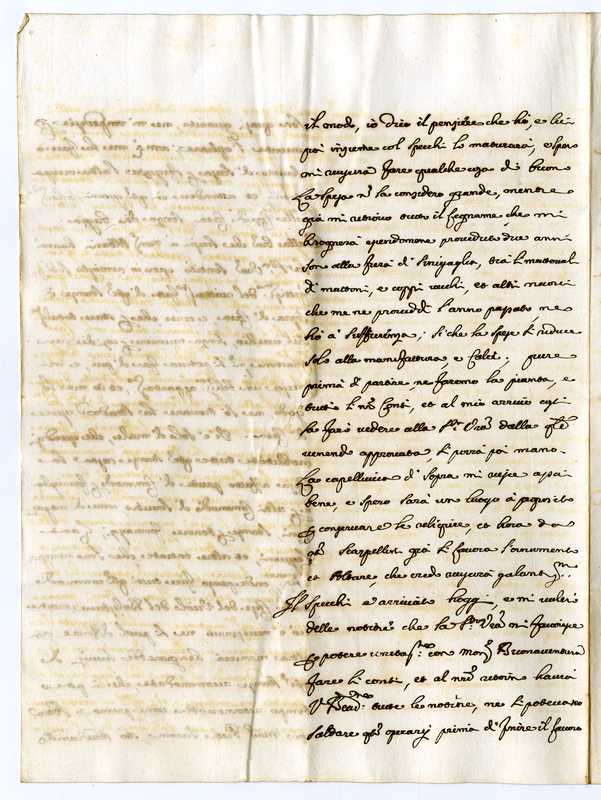 il modo, io dico il pensiere che hò, e lei
poi insieme col Specchi lo maturerà, e spero
mi riuscirà fare qualche cosa di buon
La spesa nō la considero grande, mentre
già mi ritrovo tutto il legname, che mi
bisognerà essendomene proveduto due anni
son alla fiera di Sinigaglia, trà li materiali
di mattoni, e coppi vecchi, et altri nuovi
che me ne providdi l'anno passato, ne
hò à sufficienza, si che la spesa si riduce
solo alla manifattura, e Calce; pure
prima di partire, ne faremo la pianta, e
tutti li nri Conti, et al mio arrivo costì
la farò vedere alla S. Vrā dalla qle
venendo approvata, si porrà poi mano.
La capelluccia di sopra mi riesce assai
bene, e spero sarà un luogo à proposito
p conservare le reliquie, et hora da
qti Scarpellini già si lavora l'ornamento
et Altare, che credo riuscirà galantm.
Il Specchi è arrivato hoggi, e mi
delle notitie che la S. Vrā mi favorisse
p potere unitam con Mons Buonaventura
fare li conti, et al nrō ritorn havrà
V. Bead. tutte le notitie, ne si potevano
saldare qti operarij prima di finire il lavoro